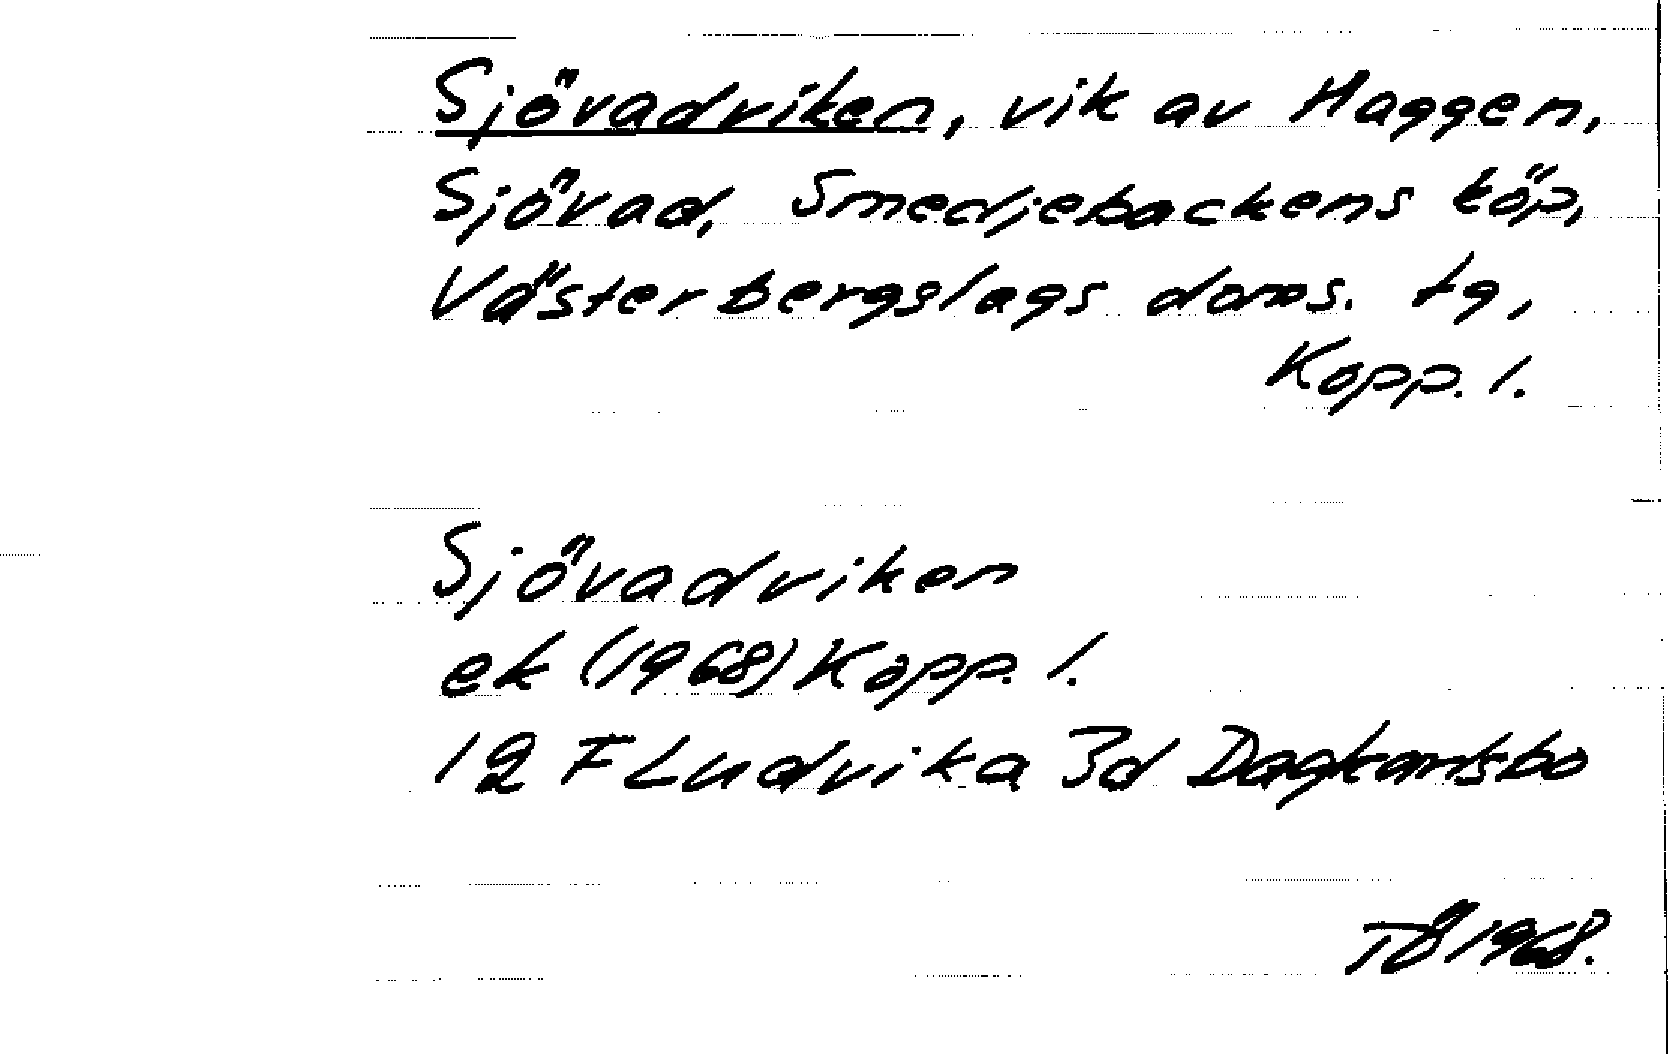 Sjövadviken, vik av Haggen,
Sjövad, Smedjebackens köp,
Västerbergslags doms. tg,
Kopp. l.
Sjövadviken
ek (1968) Kopp. l.
12 F Ludvika 3d Dagkarlsbo
TÖ 1968.